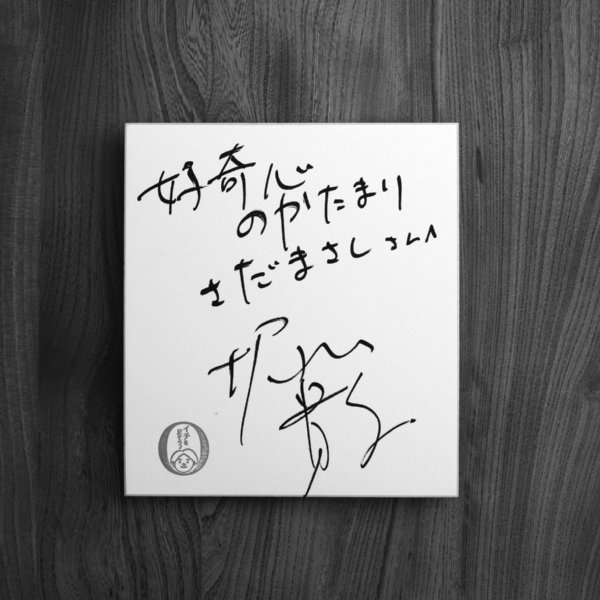 好奇心
のかたまり
さだまさしさんへ